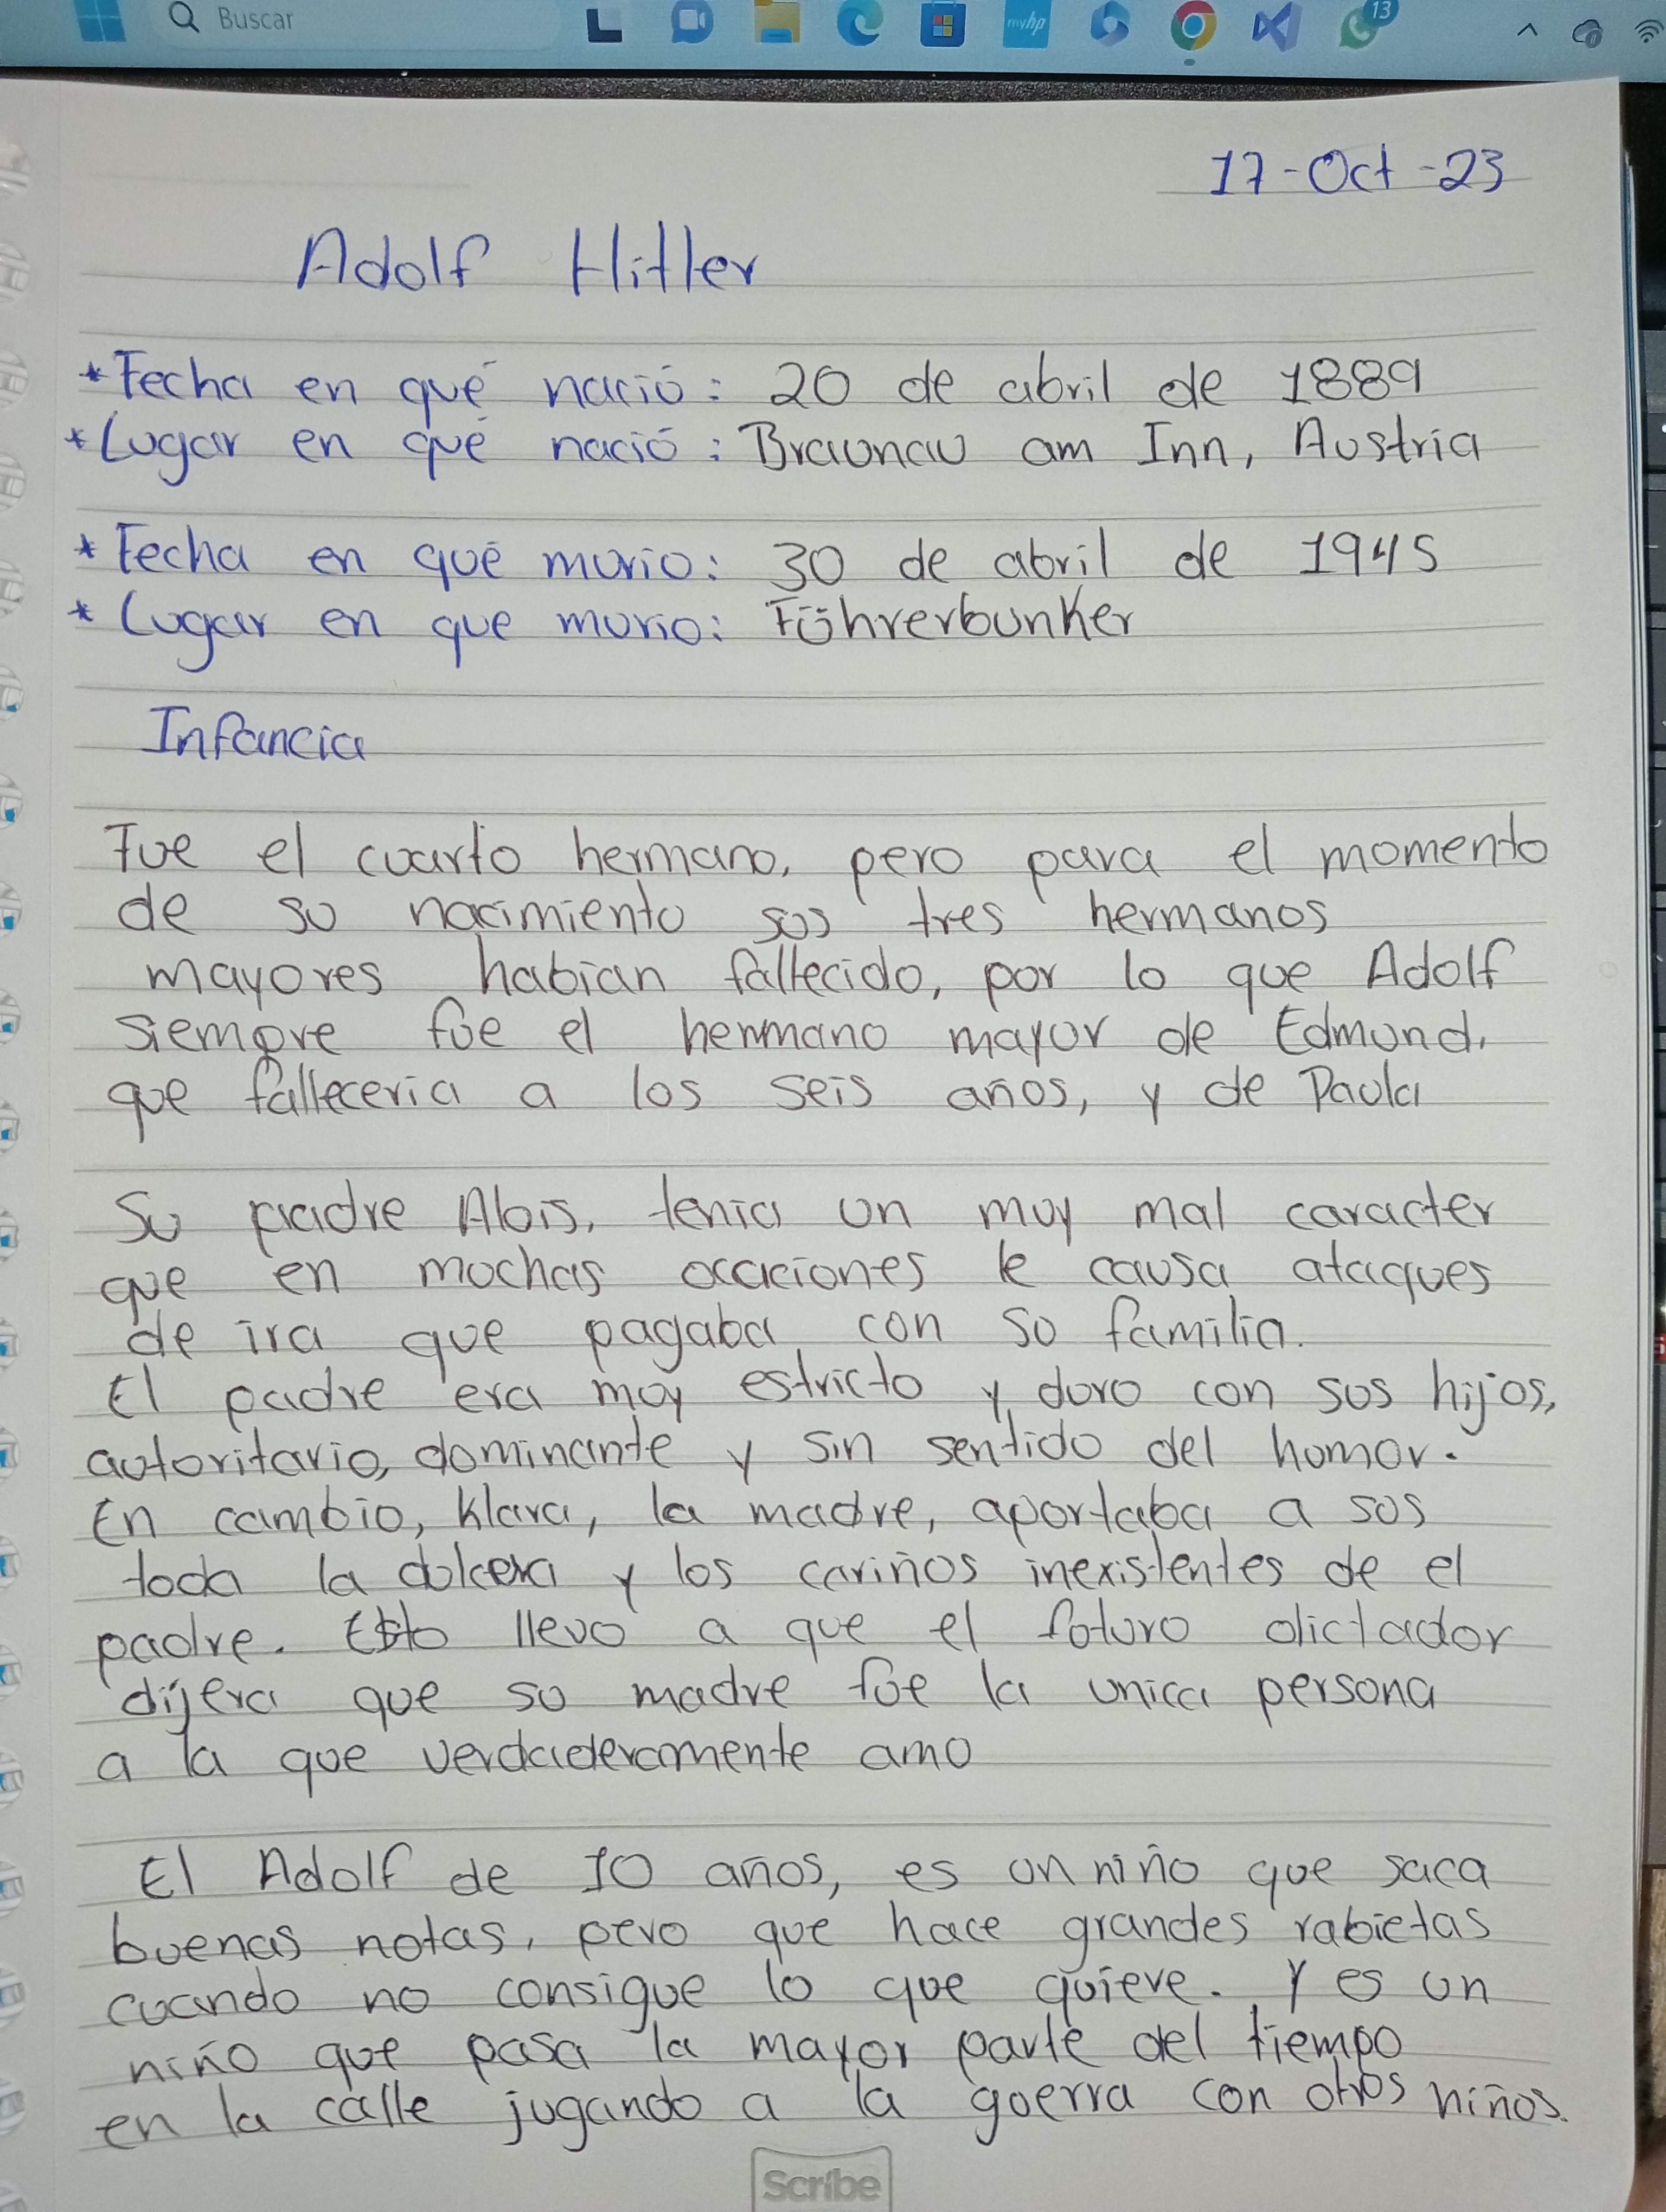 Buscar
myhp
13
17-Oct-23
Adolf Hitler
*Fecha en qué nació: 20 de abril de 1889
*Lugar en qué nació: Braunau am Inn, Austria
*Fecha en qué murio: 30 de abril de 1945
*Lugar en que murio: Führerbunker
Infancia
Fue el cuarto hermano, pero para el momento
de su nacimiento sus tres hermanos
mayores habian fallecido, por lo que Adolf
siempre fue el hermano mayor de Edmund,
que falleceria a los seis años, y de Paula
Su padre Alois, tenia un muy mal caracter
que en muchas occaciones le causa ataques
de ira que pagaba con su familia.
El padre era muy estricto y duro con sus hijos,
autoritario, dominante y sin sentido del humor.
En cambio, Klara, la madre, aportaba a sus
toda la dulcera y los cariños inexistentes de el
padre. Esto llevo a que el futuro dictador
dijera que su madre fue la unica persona
a la que verdaderamente amo
El Adolf de 10 años, es un niño que saca
buenas notas, pero que hace grandes rabietas
cuando no consigue lo que quiere. Y es un
niño que pasa la mayor parte del tiempo
en la calle jugando a la guerra con otros niños.
Scribe